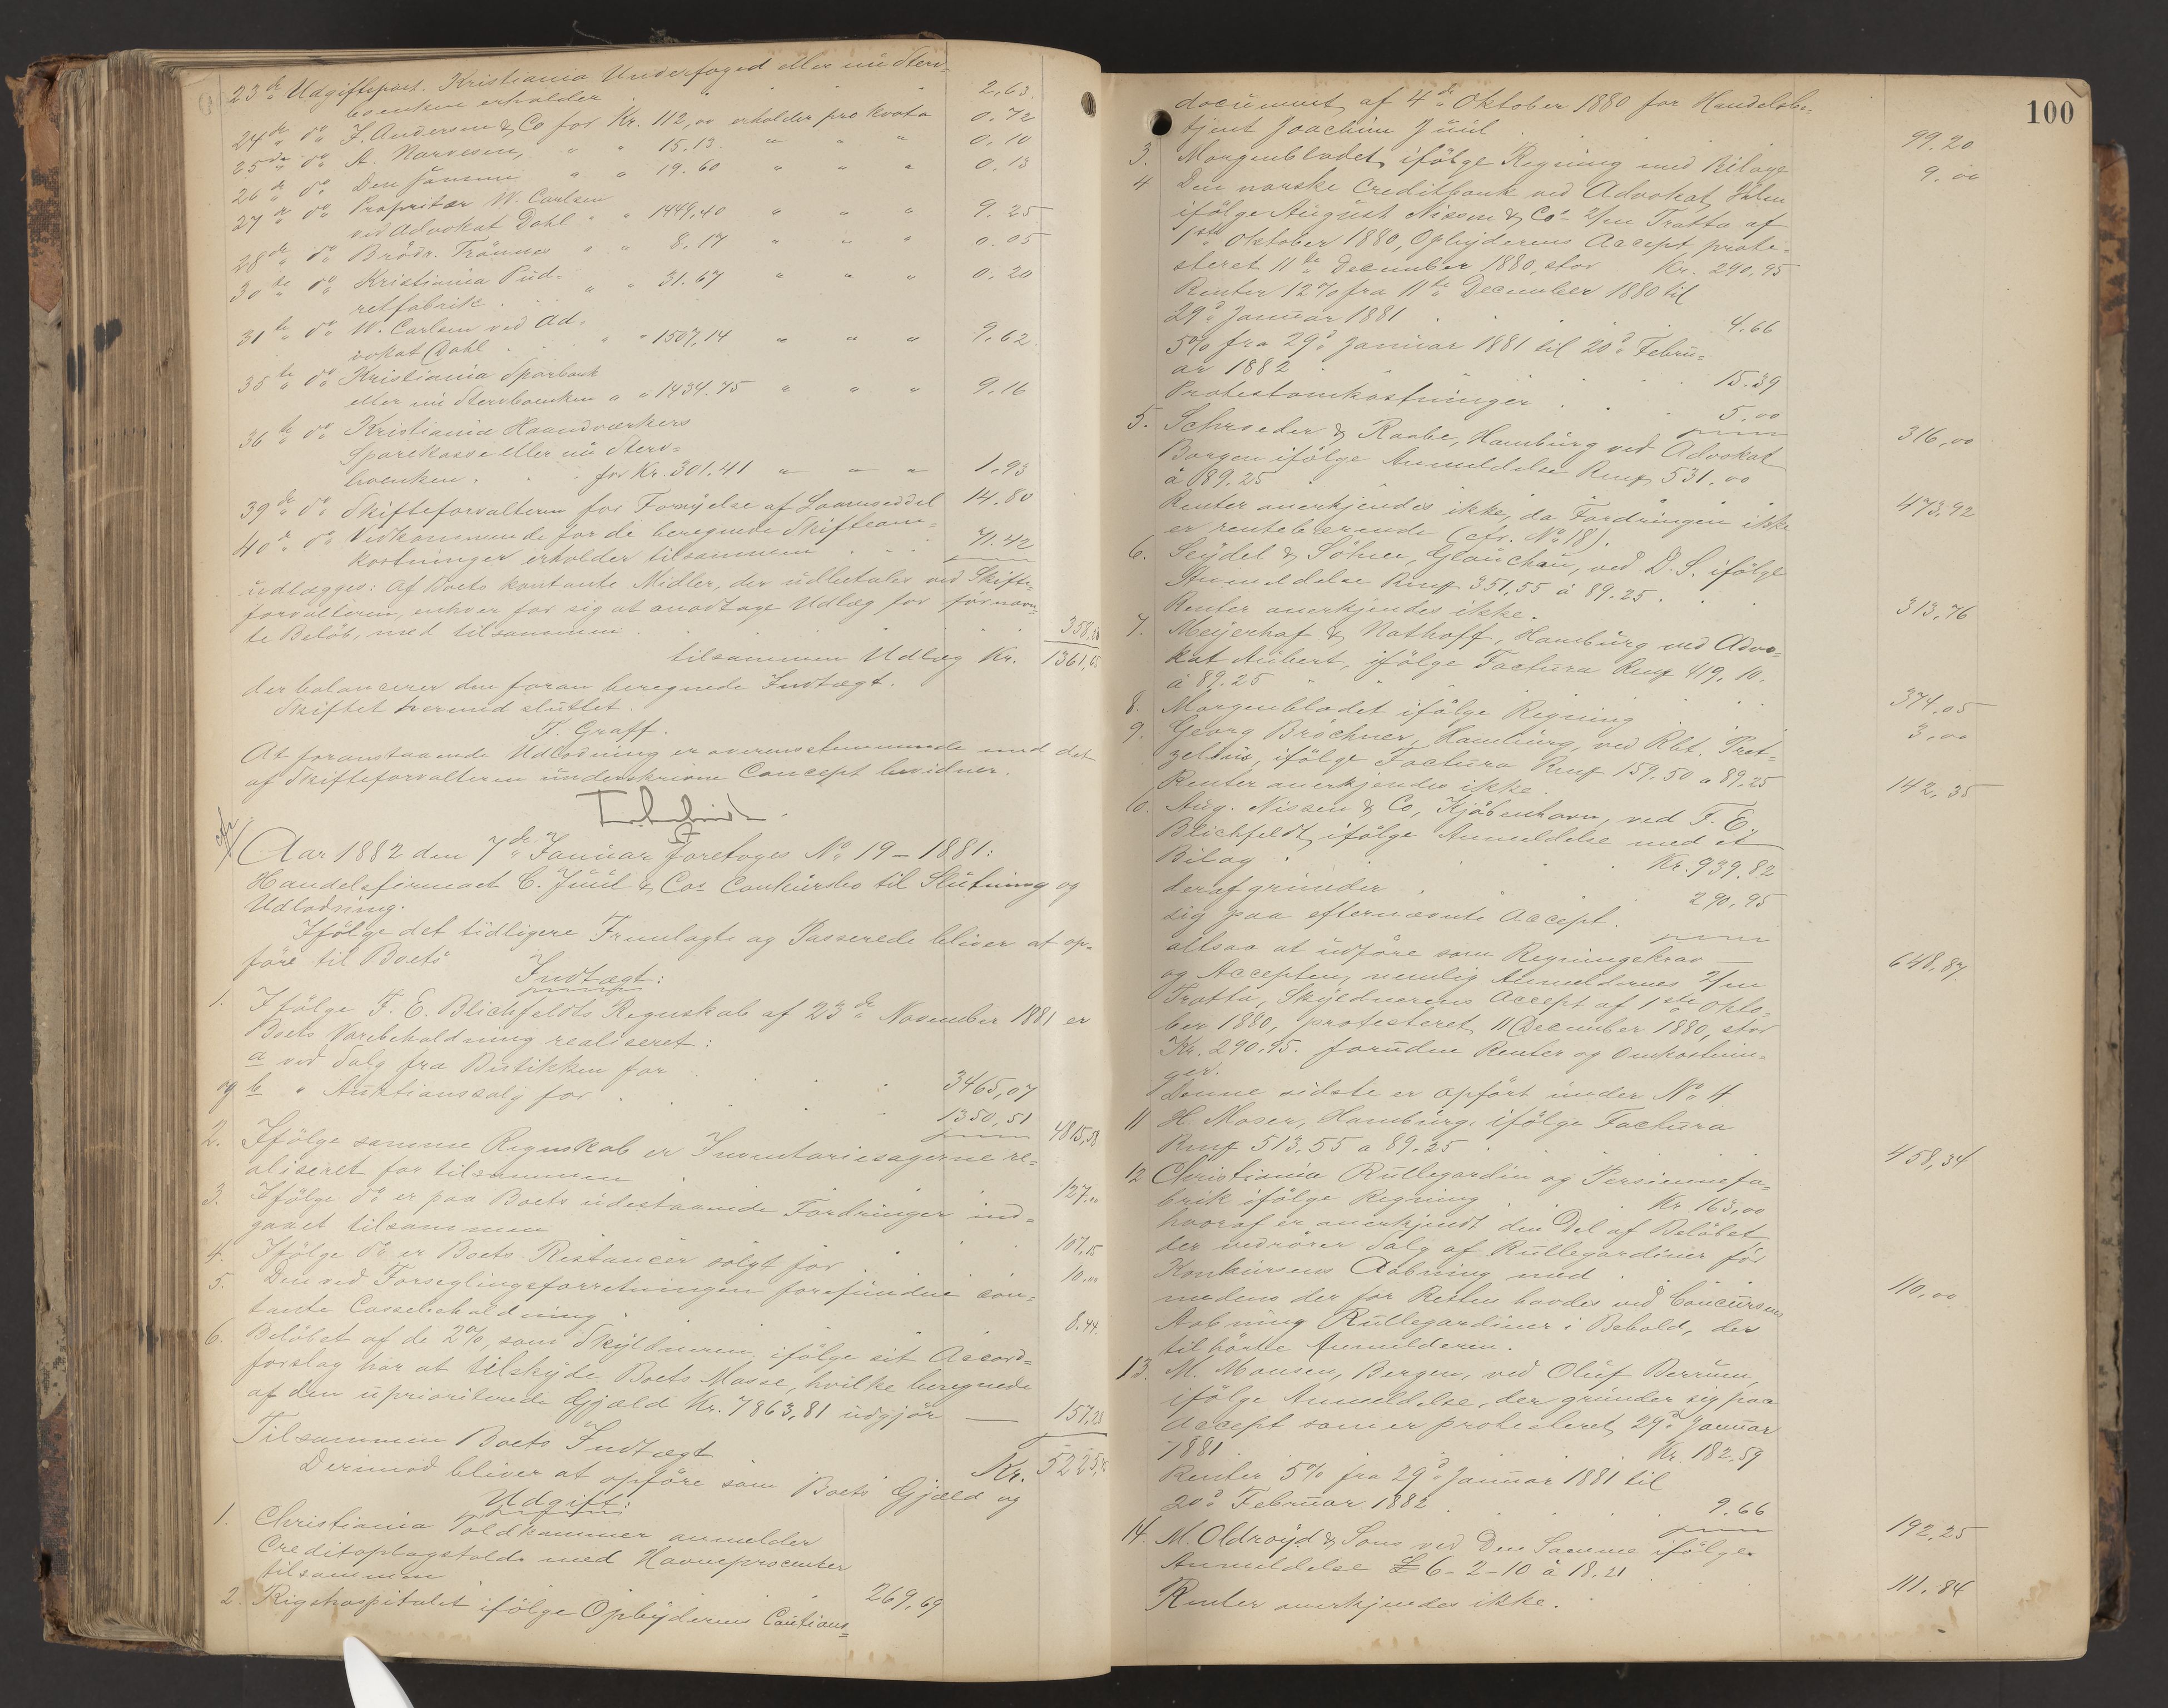 23de Udgiftspost. Kristiania Underfoged eller nu Sterv-
boenken erholder 2,63.
24de do J. Andersen & Co for Kr. 112,00 erholder pro kvota 0.72
25de do A. Narvesen, " " 15.13. " " " 0.10
26de do Den samme " " 19.60 " " " 0.13
27de do Propritær W. Carlsen
ved Advokat Dahl " " 1449,40 " " " 9.25
28de do Brödr. Trönnes " " 8.17 " " " 0.05
30te do Kristiania Pud-
retfabrik . " " 31.67 " " " 0.20
31te do W. Carlsen ved Ad-
vokat Dahl . " " 1507,14 " " " 9,62.
35te do Kristiania Sparbank
eller nu Stervboenken " " 1434.75 " " " 9,16
36te do Kristiania Haandværkers
Sparekasse eller nu Sterv-
boenken . . . for Kr. 301.41 " " " 1,93
39de do Skifteforvalteren for Fornyelse af Laaneseddel 14.80
40de do Vedkommende for de beregnede Skifteom-
kostninger erholder tilsammen 71.42
udlægges: Af Boets kontante Midler, der udbetales ved Skifte-
forvalteren, enhver for sig at modtage Udlæg for fornævn-
te Beløb, med tilsammen 358,28
tilsammen Udlæg Kr. 1361,65
der balancerer den foran beregnede Indtægt.
Skiftet hermed sluttet.
F. Graff.
At foranstaaende Udlodning er overensstemmende med det
af Skifteforvalteren underskrevne Concept bevidner.
Aar 1882 den 7de Januar foretoges No 19-1881:
Handelsfirmaet C. Juul & Cos Conkursbo til Slutning og
Udlodning.
Ifølge det tidligere Fremlagte og Passerede bliver at op-
føre til Boets
Indtægt:
1. Ifølge F. E. Blichfeldts Regnskab af 23de November 1881 er
Boets Varebeholdning realiseret:
a ved Salg fra Butikken for 3465,07
og b " Auktionssalg for 1350,51 4815,58
2. Ifølge samme Regnskab er Inventariesagerne re-
aliseret for tilsammen 127.00
3. Ifølge do er paa Boets udestaaende Fordringer ind-
gaaet tilsammen 107,15
4. Ifølge do er Boets Restancer solgt for 10,00
5. Den ved Forseglingsforretningen forefundne con-
tante Cassebeholdning 8.44.
6. Beløbet af de 2%, som Skyldneren, ifølge sit Accord-
forslag har at tilskyde Boets Masse, hvilke beregnede
af den uprioriterede Gjæld Kr. 7863,81 udgjør — 157,28
Tilsammen Boets Indtægt Kr. 5225,45
Derimod bliver at opføre som Boets Gjæld og
Udgift:
1. Christiania Toldkammer anmelder
Creditoplagstold med Havneprocenter
tilsammen 269,69
2. Rigshospitalet ifølge Opbyderens Cautions-
100
document af 4de Oktober 1880 for Handelsbe-
tjent Joachim Juul 99.20
3. Morgenbladet, ifølge Regning med Bilage 9.00
4 Den norske Creditbank ved Advokat
ifølge August Nissen & Co's 2/m Tratta af
1ste Oktober 1880, Opbyderens Accept prote-
steret 11te December 1880, stor Kr. 290,95
Renter 12% fra 11te December 1880 til
29de Januar 1881 4.66
5% fra 29de Januar 1881 til 20de Febru-
ar 1882 15.39
Protestomkostninger 5.00 316,00
5. Schroeder & Raabe, Hamburg ved Advokat
Borgen ifølge Anmeldelse Rmf 531,00
à 89.25 473,92
Renter anerkjendes ikke, da Fordringen ikke
er rentebærende (cfr. No 18).
6. Seydel & Söhne, Glauchau, ved D. S. ifølge
Anmeldelse Rmf 351,55 à 89.25. 313,76
Renter anerkjendes ikke.
7. Meijerhof & Nathoff, Hamburg ved Advo-
kat Aubert, ifølge Factura Rmf 419.10.
à 89.25 374,05
8. Morgenbladet ifølge Regning 3,00
9. Georg Bröchner, Hamburg, ved Rbt. Pret-
zelius, ifølge Factura Rmf 159.50 a 89,25 142,35
Renter anerkjendes ikke.
10. Aug. Nissen & Co, Kjøbenhavn, ved F. E.
Blichfeldt, ifølge Anmeldelse med et
Bilag Kr. 939.82
deraf grunder 290,95
sig paa efternævnte Accept.
altsaa at udføre som Regningskrav — 648,87.
og Accepten, nemlig Anmeldernes 2/m
Tratta, Skyldnerens Accept af 1ste Okto-
ber 1880, protesteret 11 December 1880, stor
Kr. 290.95. foruden Renter og Omkostnin-
ger.
Denne sidste er opført under No 4.
11 H. Moser, Hamburg, ifølge Factura
Rmf 513,55 a 89.25 458,34
12 Christiania Rullegardin og Persiennefa-
brik ifølge Regning Kr. 163,00
hvoraf er anerkjendt den Del af Beløbet
der vedrører Salg af Rullegardiner før
Konkursens Aabning med 110,00
medens der for Resten havdes ved Concursens
Aabning Rullegardiner i Behold, der
tilhørte Anmelderen.
13. M. Monsen, Bergen, ved Oluf Berrum,
ifølge Anmeldelse, der grunder sig paa
Accept som er protesteret 29de Januar
1881 Kr. 182,59
Renter 5% fra 29de Januar 1881 til
20de Februar 1882 9.66 192,25
14. M. Oldroyd & Sons ved Den Samme ifølge
Anmeldelse £ 6-2-10 à 18.21 111.84
Renter anerkjendes ikke.